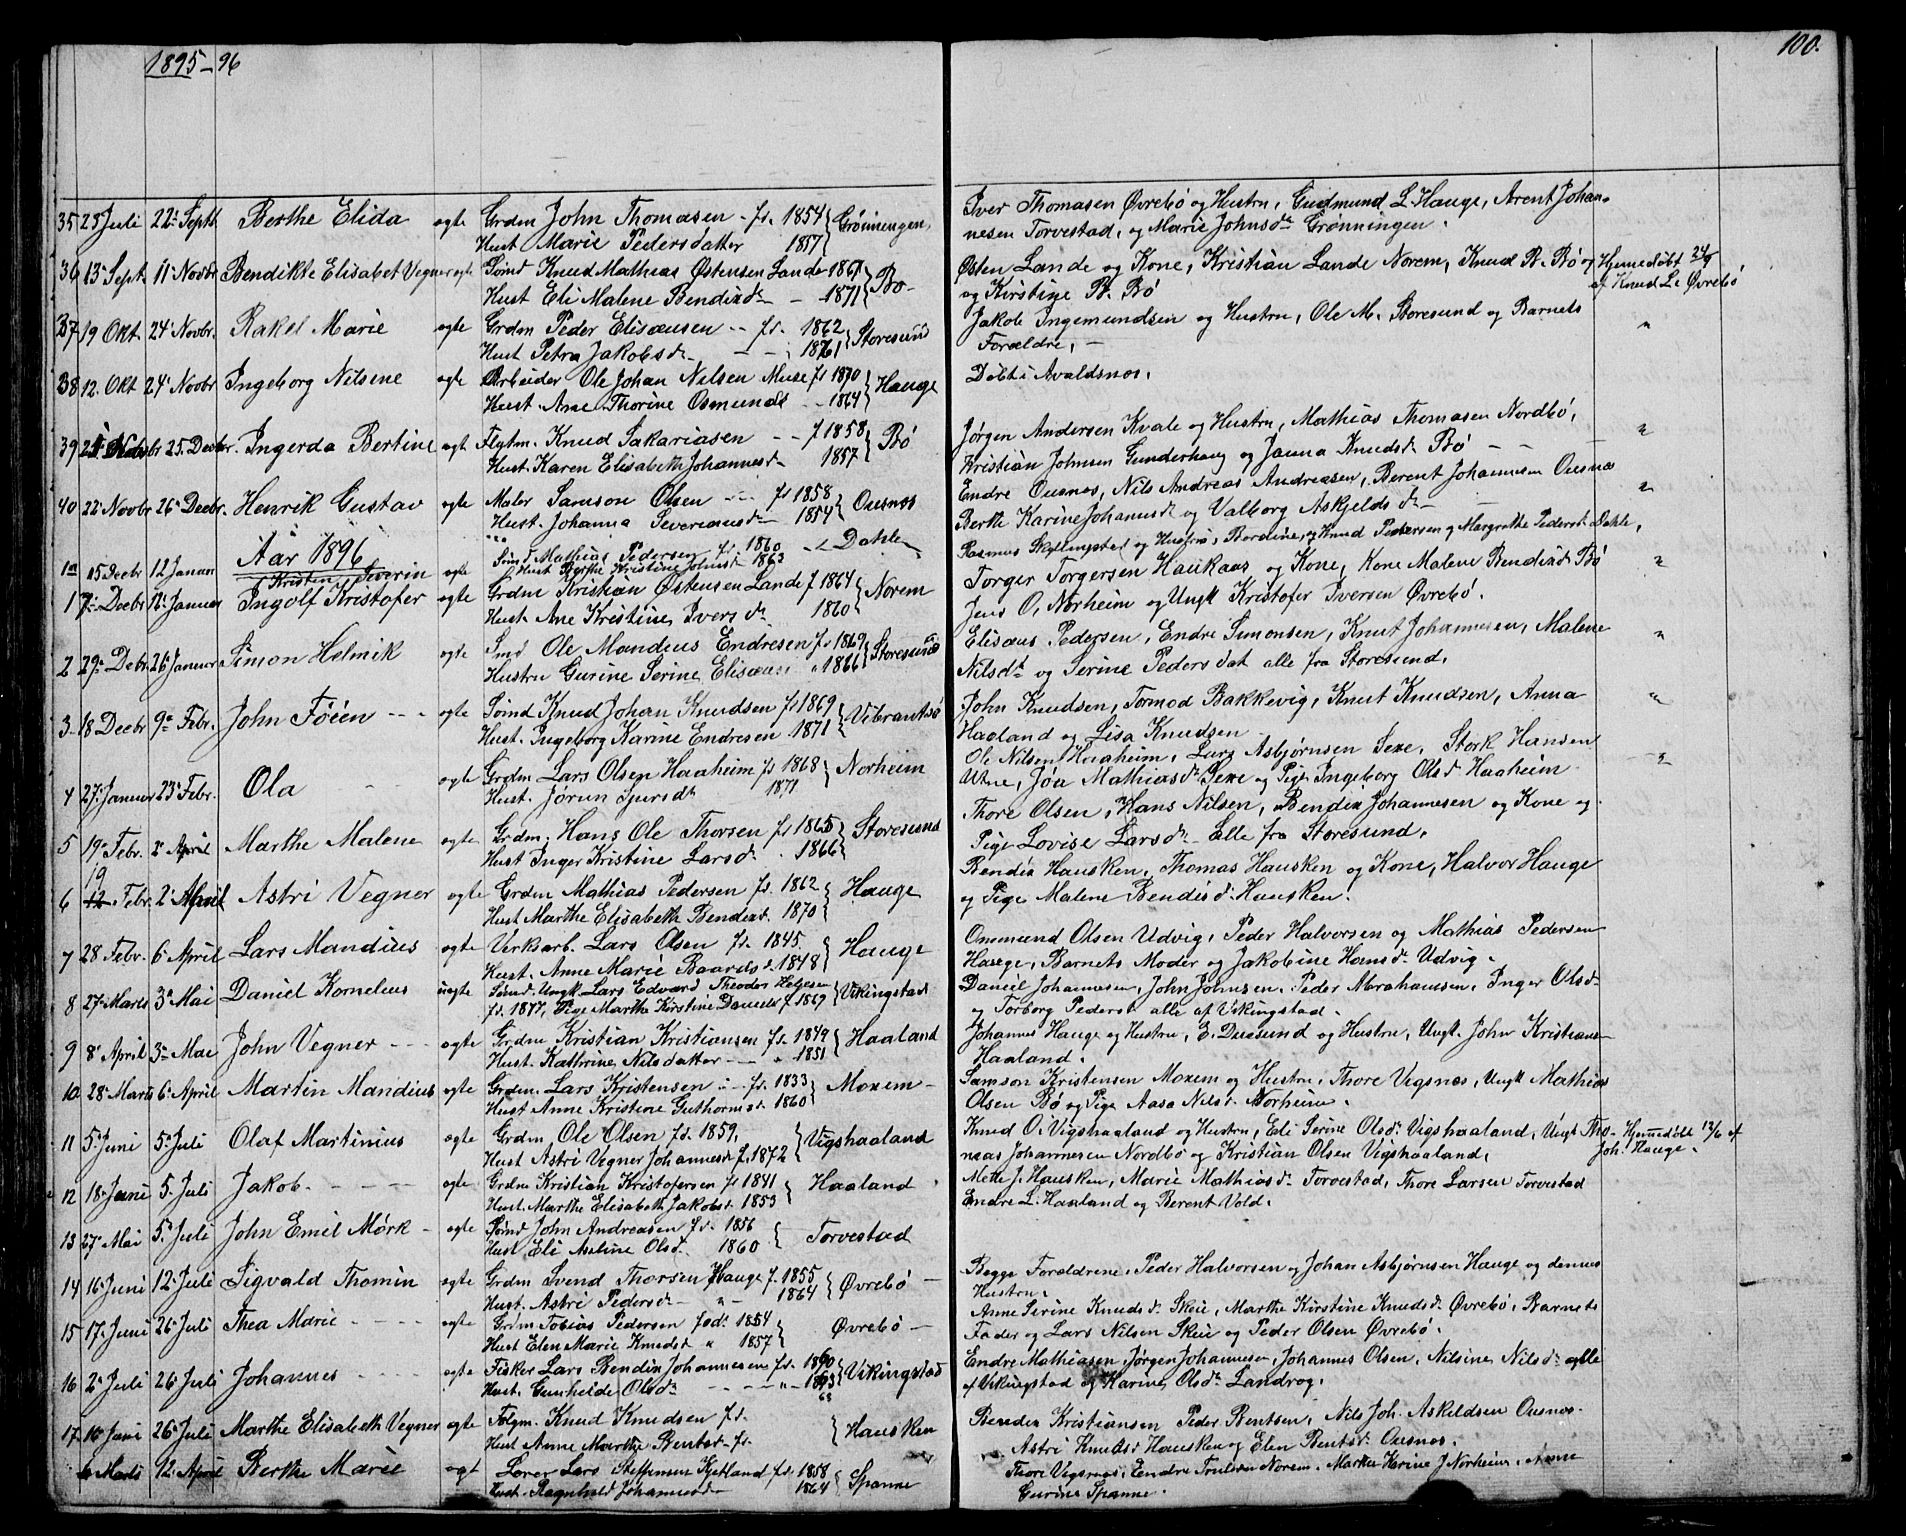 1895-96
100.
35 23 Juli 22 Septb. Berthe Elida ægte Grdm John Thomasen - fd. 1854 Grönningen
Hust Marie Pedersdatter 1857
Iver Thomasen Övrebö og Hustru, Gudmund L. Hauge, Arent Johan-
nesen Torvestad, og Marie Johnsdr Grönningen.
36 13 Sept. 11 Novbr Bendikte Elisabet Vegner ægte Sömd Knud Mathias Östensen Lande 1867 Bö
Hust Eli Malene Bendixdr - - 1871
Östen Lande og Kone, Kristian Lande Norem, Knud B. Bö og Hjemmedöbt 24/9
og Kirstine B. Bö af Knud L. Övrebö
37 19 Okt 24 Novbr. Rakel Marie ægte Grdm Peder Elisæusen - fd. 1862 Storesund
Hust Petra Jakobsdr - - 1861
Jakob Ingemundsen og Hustru, Ole M. Storesund og Barnets "
Forældre, -
38 12. Okt 24 Novbr Ingeborg Nilsine ægte Arbeider Ole Johan Nilsen Muse fd 1870 Hauge
Hust. Ane Thorine Osmundsd - - 1864
Döbt i Avaldsnes.
39 Novbr 25. Decbr. Ingerda Bertine ægt Flytm. Knud Sakariasen - - f 1858 Bö
Hust. Karen Elisabeth Johannesdr 1857
Jörgen Andersen Kvale og Hustru, Mathias Thomasen Nordbö, "
Kristian Johnsen Gunderhaug og Janna Knudsdr Bö - -
40 22 Novbr 26 Decbr. Henrik Gustav ægte Maler Samson Olsen - - fd 1858 Ousnes
Hust. Johanna Severeiusdr 1854
Endre Ousnes, Nils Andreas Andreasen, Berent Johannesen Ousnes "
Berthe Karine Johannesdr og Valborg Askjeldsdr -
Aar 1896
15 Decbr 12 Januar Kristen Severin ægte Smd Mathias Pedersen fd. 1860 Dahle
Hust Berthe Kristine Johnsdr 1863
Rasmus Skjellingstad og Hustru, Knud Pedersen og Margrethe Pedersdt Dahle,
1 7 Decbr 12 Januar Ingolf Kristofer ægte Grdm Kristian Östensen Lande f 1864 Norem
Hust. Ane Kristine Iversdr 1860
Torger Torgersen Haukaas og Kone, Kone Malene Bendixdt Bö "
Jens O. Norheim og Ungk Kristofer Iversen Övrebö.
2 29 Debr 26 Januar Simon Helmik ægte Smd Ole Mandius Endresen fd 1869 Storesund
Hustru Gurine Serine Elisæusd 1866
Elisæus Pedersen, Endre Simonsen, Knut Johannesen, Malene "
Nilsdt og Serine Pedersdat alle fra Storesund.
3 18 Decbr 9 Febr. John Föien - - ægte Sömd Knud Johan Knudsen fd 1869 Vibrantsö
Hust. Ingeborg Karine Endresen 1871
John Knudsen, Tormod Bakkevig, Knut Knudsen, Anna "
Haaland og Lisa Knudsen
4 27 Januar 23 Febr. Ola ægte Grdm Lars Olsen Haaheim fd 1868 Norheim
Hust. Jörun Sjursdt 1871
Ole Nilsen Haaheim, Lars Asbjörnsen Sexe, Stork Hansen "
Utne, Jöa Mathiasdr Sexe og Pige Ingeborg Olsd Haaheim
5 19 Febr. 2 April Marthe Malene ægte Grdm. Hans Ole Thorsen fd 1865 Storesund
Hust Inger Kristine Larsdr 1866
Thore Olsen, Hans Nilsen, Bendix Johannesen og Kone og
Pige Lovise Larsdr - Alle fra Storesund.
6 19 12 Febr. 2 April Astri Vegner ægte Grdm Mathias Pedersen fd. 1862 Hauge
Hust Marthe Elisabeth Bendixd. 1870
Bendix Hausken, Thomas Hausken og Kone, Halvor Hauge
og Pige Malene Bendixdr Hausken.
7 28 Febr. 6 April Lars Mandius ægte Verksarb. Lars Olsen fd. 1845 Hauge
Hust. Anne Marie Baardsd. 1848
Ommund Olsen Udvig, Peder Halvorsen og Mathias Pedersen
Hauge, Barnets Moder og Jakobine Hansdr Udvig.
8 27 Marts 3 Mai Daniel Kornelius uægte Sömd. Ungk. Lars Edvard Theodor Helgesen Vikingstad
fd. 1877, Pige Marthe Kirstine Danielsd f 1869
Daniel Johannesen, John Johnsen, Peder Abrahamsen, Inger Olsd
og Torborg Pedersd alle af Vikingstad.
9 8 April 3 Mai John Vegner - - ægte Grdm Kristian Kristiansen fd. 1849 Haaland
Hust. Kathrine Nilsdatter - - " 1851
Johannes Hauge og Hustru, E. Duesund og Hustru, Ungk. John Kristians-
Haaland.
10 28 Marts 6 April Martin Mandius ægte Grdm. Lars Kristensen - - fd. 1833 Moxem -
Hust Anne Kristine Guthormsd. 1860
Samson Kristensen Moxem og Hustru, Thore Vigsnes, Ungk Mathias
Olsen Bö og Pige Aasa Nilsd Norheim.
11 5 Juni 5 Juli Olaf Martinius ægte Grdm Ole Olsen fd. 1859, Vigshaaland
Hust Astri Vegner Johannesd f. 1872
Knud O. Vigshaaland og Hustru, Eli Serine Olsdr Vigshaaland, Ungk Tho- Hjemmedöbt 12/6 af
mas Johannesen Nordbö og Kristian Olsen Vigshaaland. Joh. Hauge.
12 18 Juni 5 Juli Jakob - - - ægte Grdm Kristian Kristofersen fd 1841 Haaland
Hust. Marthe Elisabeth Jakobsd. 1853
Mette J. Hausken, Marie Mathiasdr Torvestad, Thore Larsen Torvestad
Endre L. Haaland og Berent Vold.
13 27 Mai 5 Juli John Emil Mörk - ægte Sömd John Andreasen fd. 1856 Torvestad
Hust Eli Axeline Olsd. 1860
14 16 Juni 12 Juli Sigvald Thomin ægte Grdm Svend Thorsen Hauge f. 1855 Övrebö -
Hust. Astri Pedersdr - " - 1864
Begge Forældrene, Peder Halvorsen og Johan Asbjörnsen Hauge og dennes
Hustru.
15 17 Juni 26 Juli Thea Marie - - - ægte Grdm Tobias Pedersen fod. 1854 Övrebö -
Hust Elen Marie Knudsd " 1857
Anne Serine Knudsdr Skeie, Marthe Kirstine Knudsdr Övrebö, Barnets
Fader og Lars Nilsen Skeie og Peder Olsen Övrebö.
16 2 Juli 26 Juli Johannes - - - ægte Fisker Lars Bendix Johannesen fd. 1860 Vikingstad
Hust. Gunhilde Olsdr - - - " - 1863
63
Endre Mathiasen, Jörgen Johannesen, Johannes Olsen, Nilsine Nilsdr alle
af Vikingstad og Karine Olsdr Landrog.
17 16 Juni 26 Juli Marthe Elisabeth Vegner ægte Folgm. Knud Knudsen fd. Hausken
Hust Anne Marthe Bentsd. fd.
Bendix Kristiansen Peder Bentsen, Nils Joh. Askildsen Ousnes.
Astri Knudsd Hausken og Elen Bentsdr Ousnes.
Marts 12 April Berthe Marie ægt Lærer Lars Steffensen Kjetland fd. 1858 Spanne
Hust. Ragnhild Johannesdr 1864
Thore Vigsnes, Endre Norem, Karine J Norheim, Anne
Gurine Spanne.